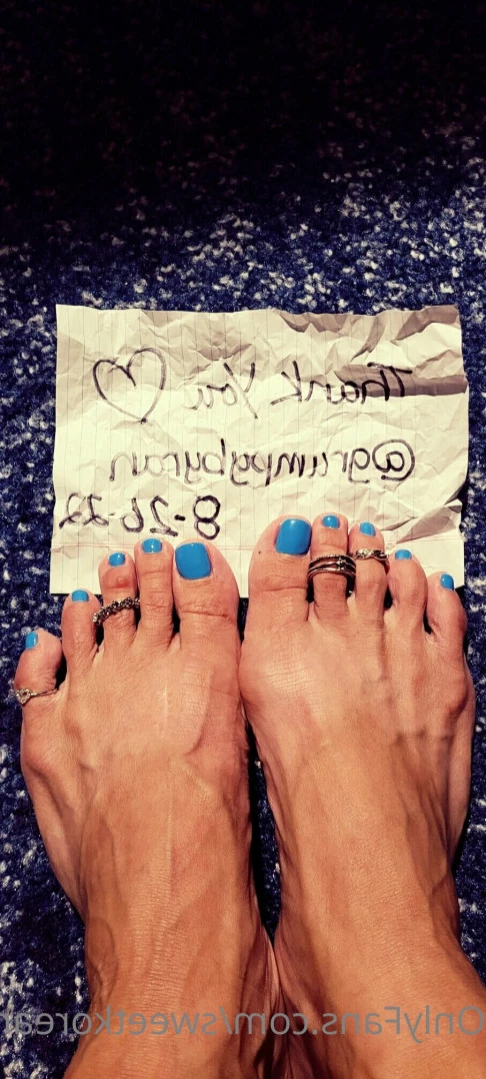 Thank You
@grumpybyran
8-26-22
OnlyFans.com/sweetkorea